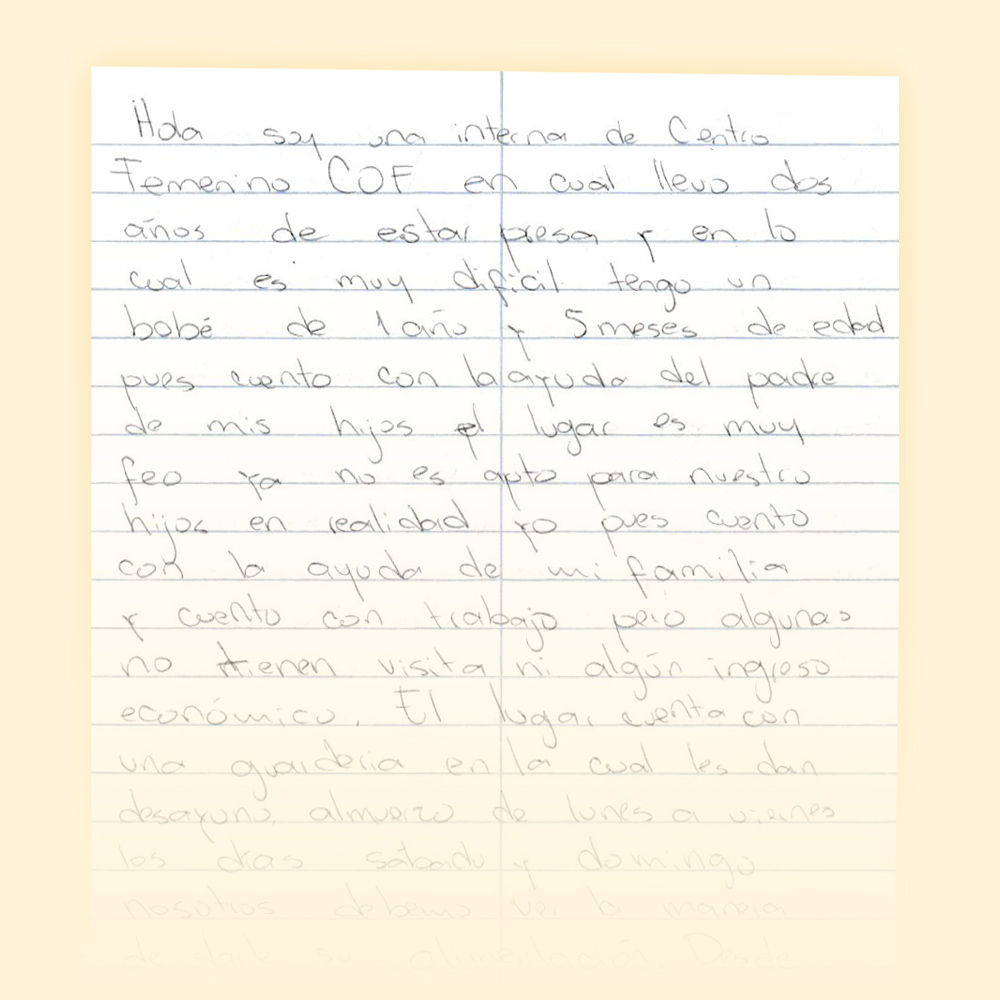 Hola soy una interna de Centro
Femenino COF en cuál llevo dos
años de estar presa y en lo
cual es muy difícil tengo un
bobé de 1 año y 5 meses de edad
pues cuento con la ayuda del padre
de mis hijos el lugar es muy
feo ya no es apto para nuestro
hijos en realidad yo pues cuento
con la ayuda de mi familia
y cuento con trabajo pero algunas
no tienen visita ni algún ingreso
económico. El lugar cuenta con
una guarderia en la cual les dan
desayuno, almuerzo de lunes a viernes
los días sábado y domingo
nosotros debemo ver la manera
de darle su alimentación. Desde